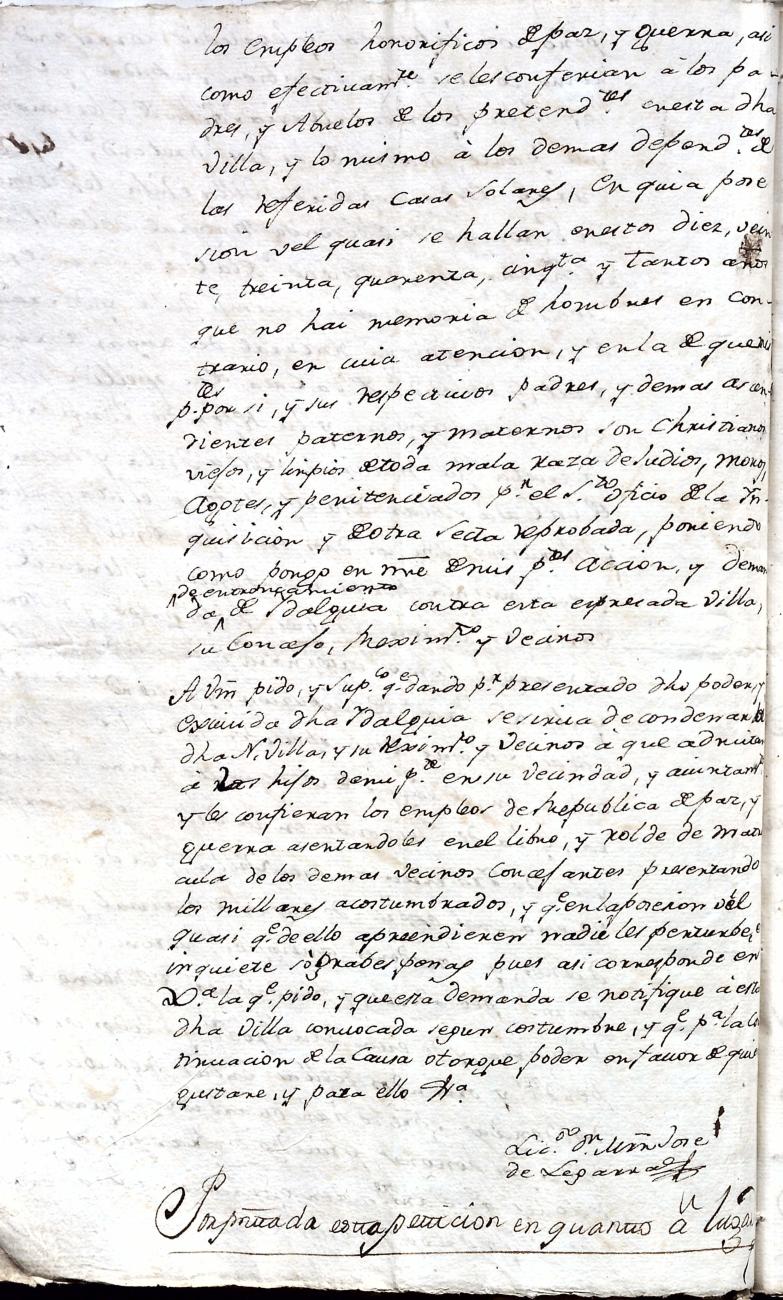 los empleos honorificos de paz, y guerra, asi
como efectivam.te se les conferian à los pa-
dres, y Abuelos de los pretend.tes en esta dha
villa, y lo mismo à los demas depend.tes de
las referidas Casas Solares, en quia pose
sion vel quasi se hallan en estos diez, vein
te, treinta, quarenta, cinq.ta y tantos años
que no hai memoria de hombres en con-
trario, en cuia atencion, y en la de que mis
p.tes por si, y sus respectivos padres, y demas ascen-
dientes paternos, y maternos son Christianos
viejos, y limpios de toda mala raza de Judios, moros,
Agotes, y penitenciados p.r el S.to oficio de la Yn-
quisicion y de otra secta reprobada, poniendo
como pongo en nre de mis p.tes accion, y deman
de entroncamiento
da de Ydalguia contra esta expresada villa,
su Concejo, Reximto y vecinos
A Vm pido, y sup.co q.e dando p.r presentado dho poder, y
exivida dha Ydalguia se sirva de condenar
dha N. villa, y su Reximto y vecinos à que admitan
à los hijos de mi p.te en su vecindad, y aiuntam.to
y les confieran los empleos de Republica de paz, y
guerra asentandoles en el libro, y rolde de matri
cula de los demas vecinos Concejantes presentando
los millares acostumbrados, y q.e en la posecion vel
quasi q.e de ello apreendieren nadie les perturbe, e
inquiete so grabes penas pues asi corresponde en
la q.e pido, y que esta demanda se notifique à esta
dha villa convocada segun costumbre, y q.e p.a la Co
tinuacion de la Causa otorgue poder en favor de quie
gustare, y para ello
Lic.do d.n Mrn Jose
de Legarra
Por pntada esta peticion en quanto à lugar